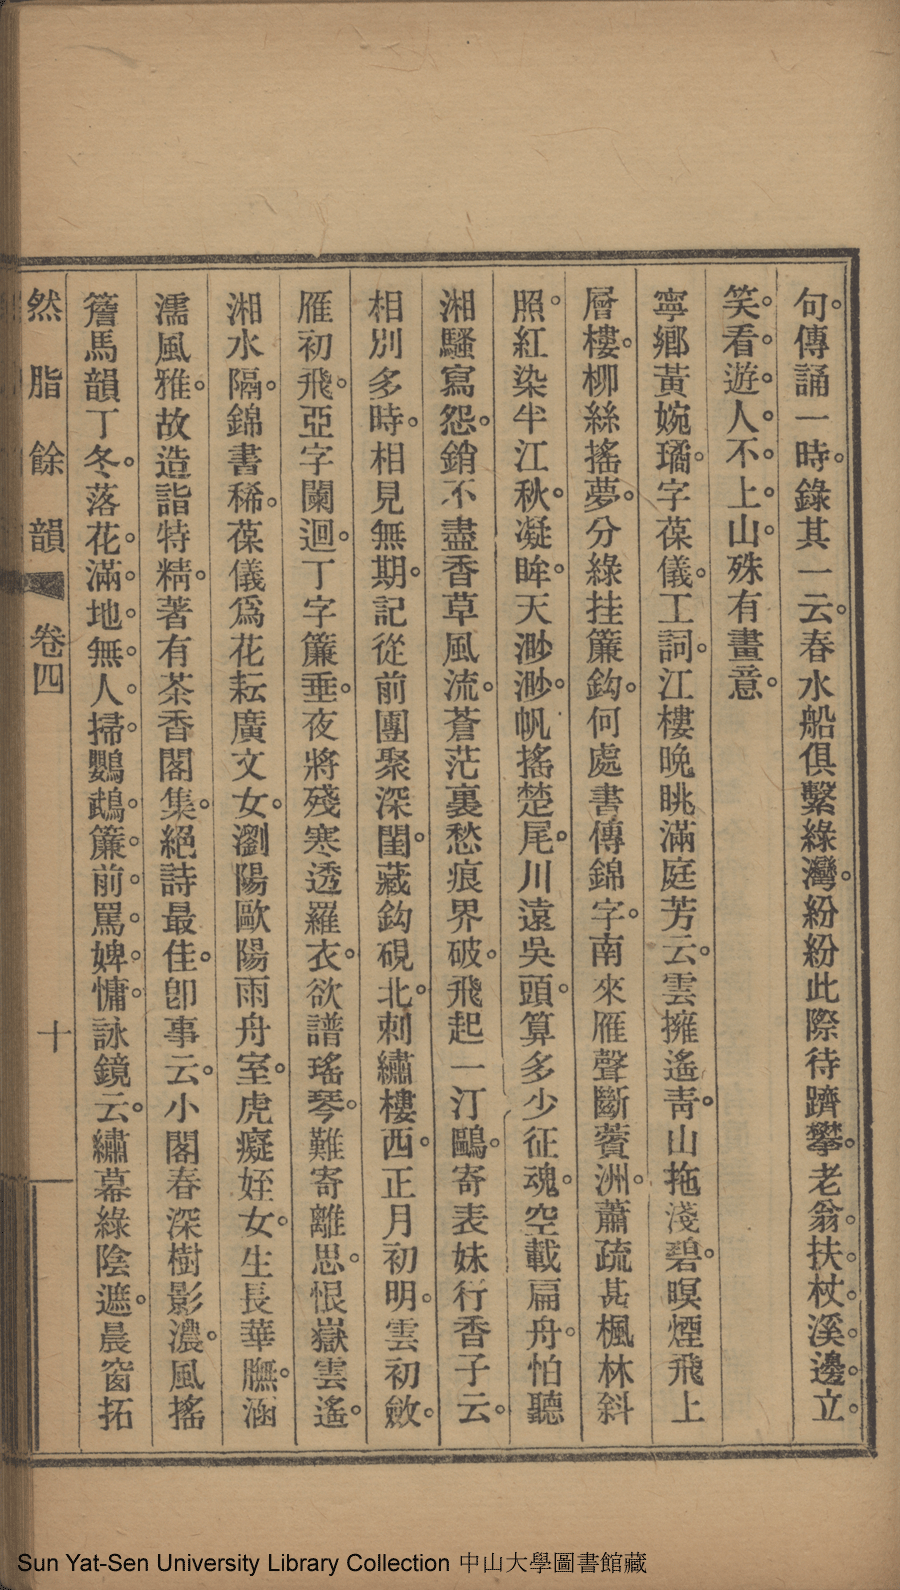 句。傳誦一時。錄其一云。春水船俱繫綠灣。紛紛此際待躋攀。老翁。扶。杖。溪。邊。立。
笑。看。遊。人。不。上。山。殊有畫意。
寧鄉黃婉璚。字葆儀。工詞。江樓晚眺滿庭芳云。雲擁遙青。山拖淺碧。暝煙飛上
層樓。柳絲搖夢。分綠挂簾鈎。何處書傳錦字。南來雁聲斷薲洲。蕭疏甚楓林斜
照。紅染半江秋。凝眸。天渺渺。帆搖楚尾。川遠吳頭。算多少征魂。空載扁舟。怕聽
湘騷寫怨。銷不盡香草風流。蒼茫裏愁痕界破。飛起一汀鷗。寄表妹行香子云。
相別多時。相見無期。記從前團聚深閨。藏鈎硯北。刺繡樓西。正月初明。雲初斂。
雁初飛。亞字闌迴。丁字簾垂。夜將殘寒透羅衣。欲譜瑤琴。難寄離思。恨嶽雲遙。
湘水隔。錦書稀。葆儀爲花耘廣文女。瀏陽歐陽雨舟室。虎癡姪女。生長華膴。涵
濡風雅。故造詣特精。著有茶香閣集。絕詩最佳。卽事云。小閣春深樹影濃。風搖
簷馬韻丁冬。落花。滿。地。無。人。掃。鸚鵡。簾。前。罵。婢。慵。詠鏡云。繡幕綠陰遮。晨窗拓
然脂餘韻 卷四
十
Sun Yat-Sen University Library Collection 中山大學圖書館藏